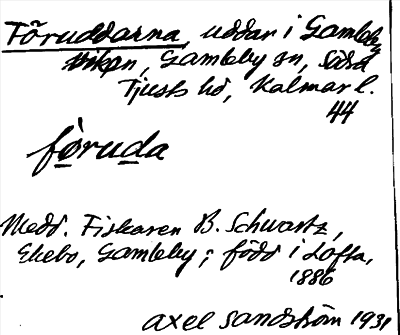 Töruddarna, uddar i Gamleby
viken, Gamleby sn, Södra
Tjusts hd, Kalmar l.
44
fö̱ruḏa
Medd. Fiskaren B. Schwartz,
Ekebo, Gamleby; född i Lofta,
1886
Axel Sandström 1931